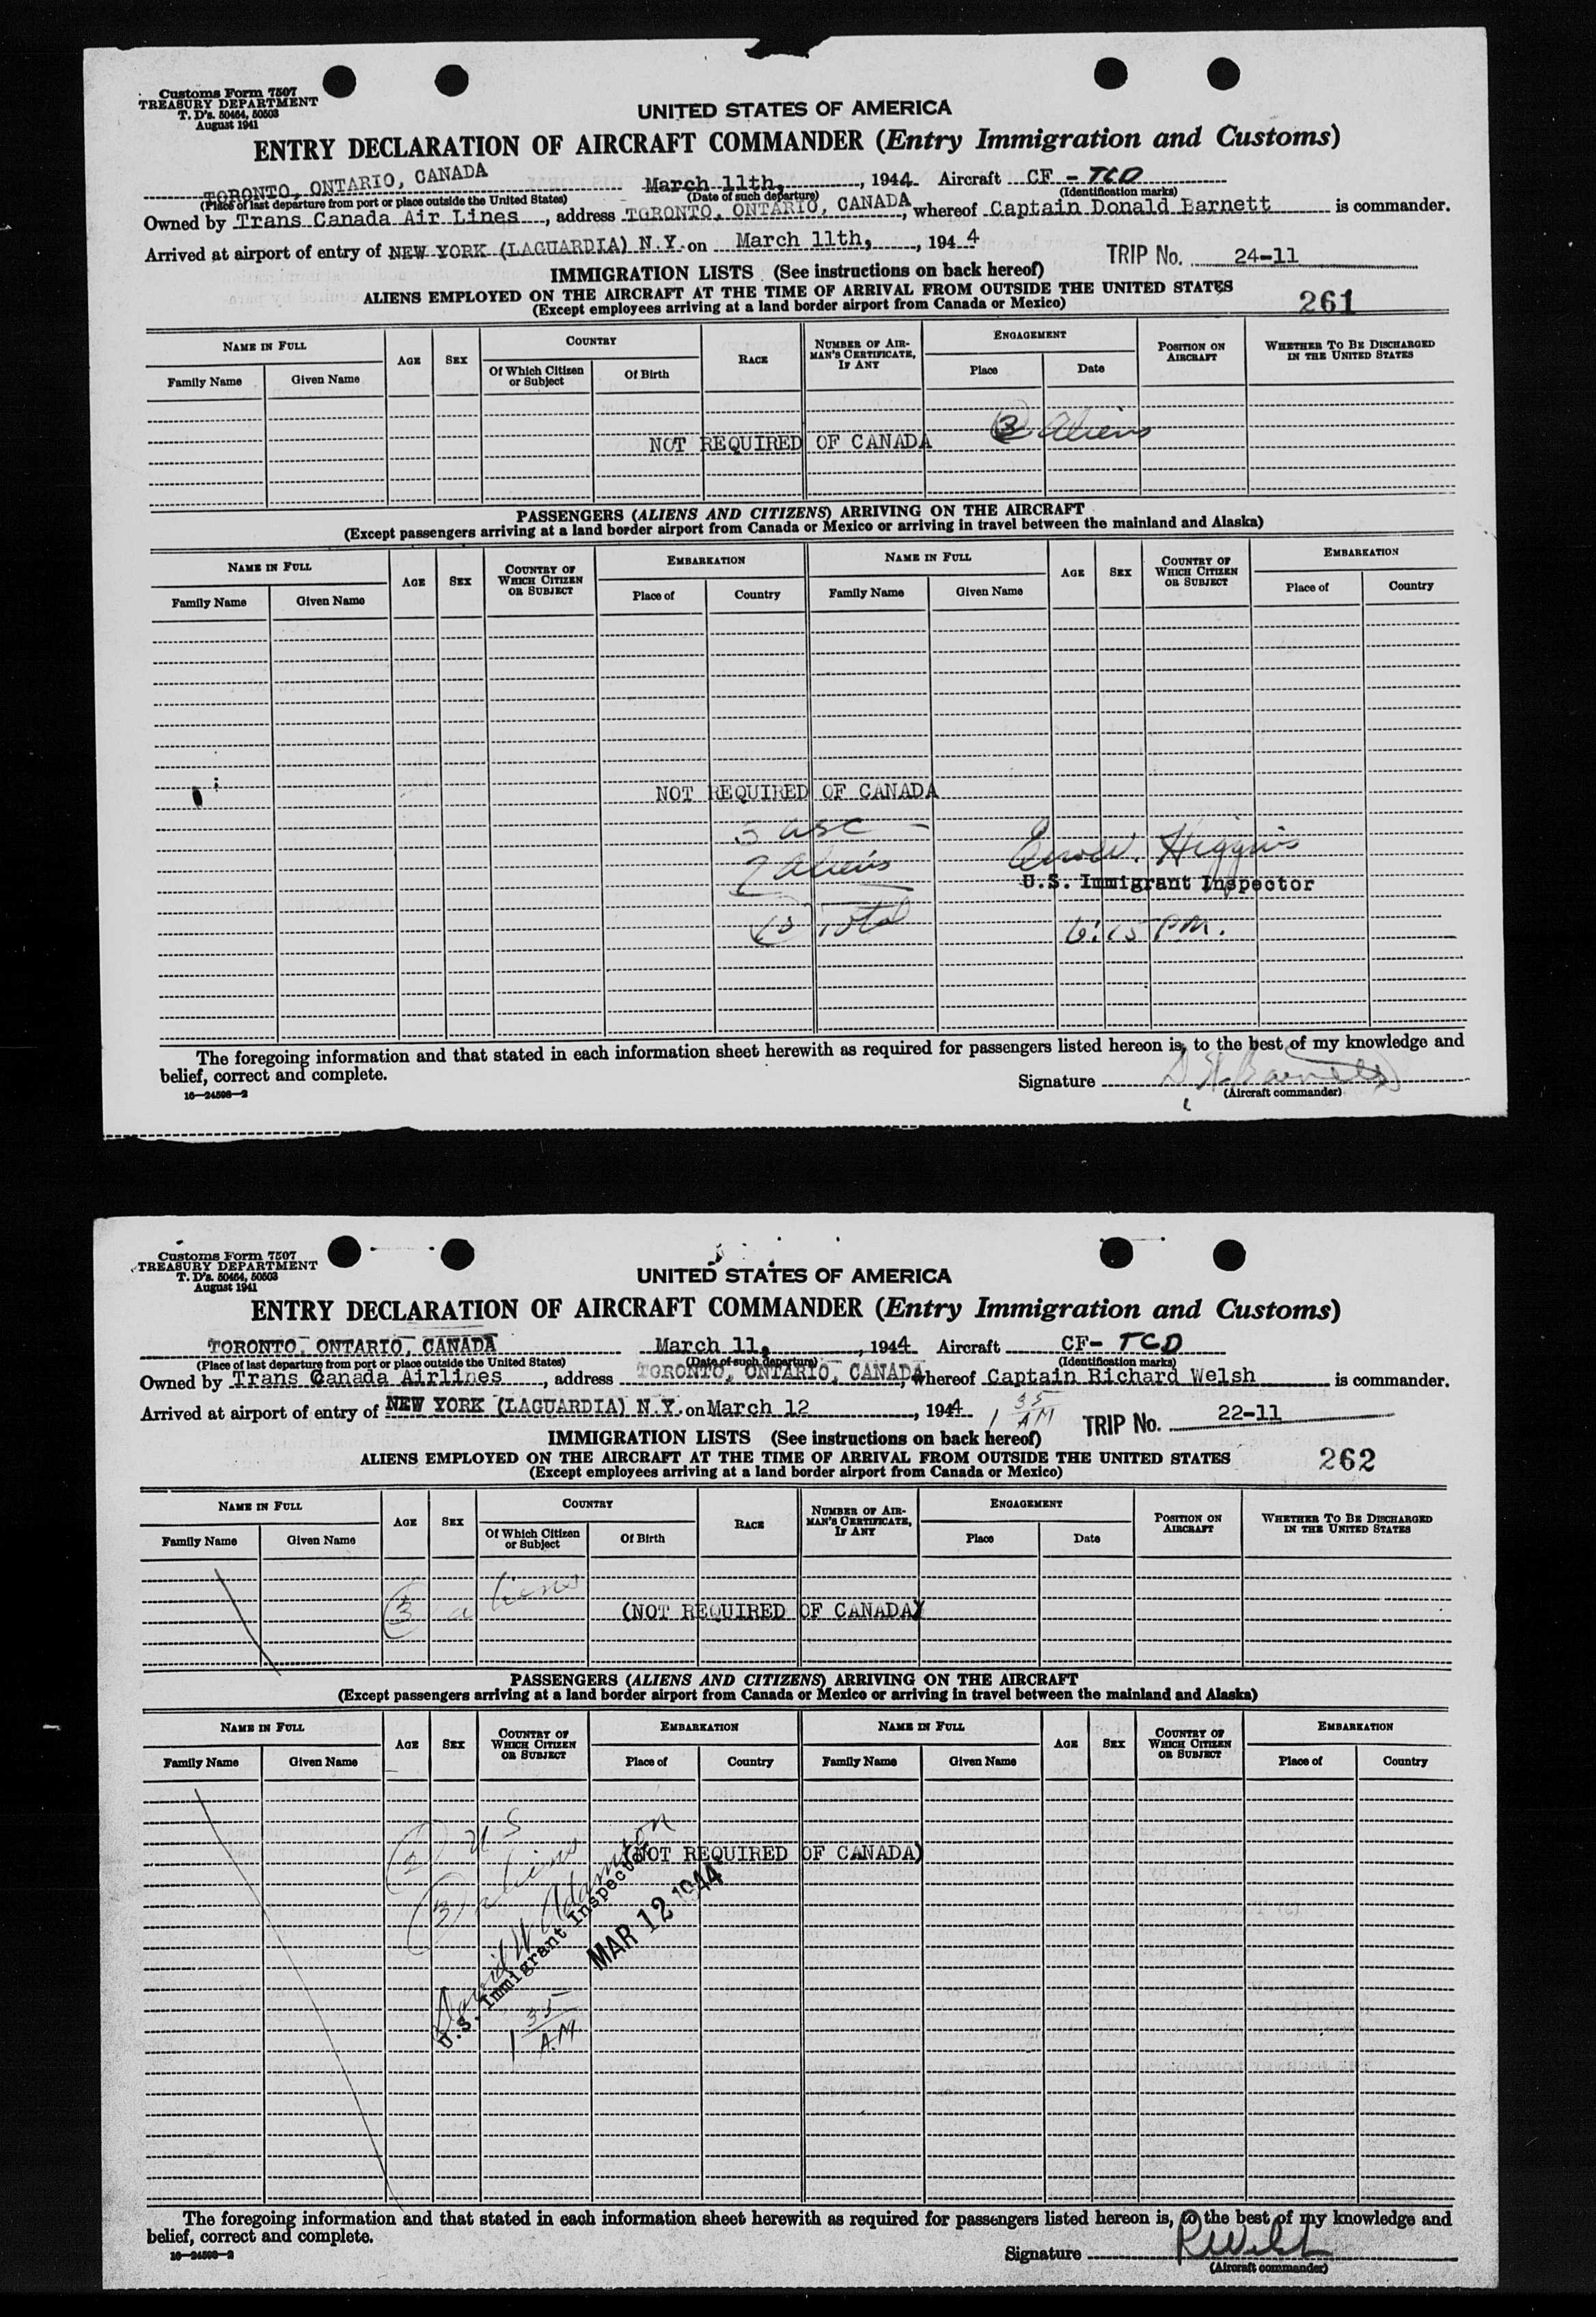 Customs Form 7507
TREASURY DEPARTMENT
T. D's. 50464, 50503
August 1941
UNITED STATES OF AMERICA
ENTRY DECLARATION OF AIRCRAFT COMMANDER (Entry Immigration and Customs)
TORONTO, ONTARIO, CANADA March 11th, , 1944 Aircraft CF - TCD
(Place of last departure from port or place outside the United States) (Date of such departure) (Identification marks)
Owned by Trans Canada Air Lines , address TORONTO, ONTARIO, CANADA , whereof Captain Donald Barnett is commander.
Arrived at airport of entry of NEW YORK (LAGUARDIA) N.Y. on March 11th, , 1944 TRIP No. 24-11
IMMIGRATION LISTS (See instructions on back hereof)
ALIENS EMPLOYED ON THE AIRCRAFT AT THE TIME OF ARRIVAL FROM OUTSIDE THE UNITED STATES
(Except employees arriving at a land border airport from Canada or Mexico)
261
NAME IN FULL AGE SEX COUNTRY RACE NUMBER OF AIRMAN'S CERTIFICATE, IF ANY ENGAGEMENT POSITION ON AIRCRAFT WHETHER TO BE DISCHARGED IN THE UNITED STATES
Family Name Given Name Of Which Citizen or Subject Of Birth Place Date
3 Aliens
NOT REQUIRED OF CANADA
PASSENGERS (ALIENS AND CITIZENS) ARRIVING ON THE AIRCRAFT
(Except passengers arriving at a land border airport from Canada or Mexico or arriving in travel between the mainland and Alaska)
NAME IN FULL AGE SEX COUNTRY OF WHICH CITIZEN OR SUBJECT EMBARKATION NAME IN FULL AGE SEX COUNTRY OF WHICH CITIZEN OR SUBJECT EMBARKATION
Family Name Given Name Place of Country Family Name Given Name Place of Country
NOT REQUIRED OF CANADA
3 USC -
Aliens Higgins
U.S. Immigrant Inspector
Total 6:15 P.M.
The foregoing information and that stated in each information sheet herewith as required for passengers listed hereon is, to the best of my knowledge and
belief, correct and complete.
Signature D H Barnett
16—24598-2 (Aircraft commander)
Customs Form 7507
TREASURY DEPARTMENT
T. D's. 50464, 50503
August 1941
UNITED STATES OF AMERICA
ENTRY DECLARATION OF AIRCRAFT COMMANDER (Entry Immigration and Customs)
TORONTO, ONTARIO, CANADA March 11, , 1944 Aircraft CF- TCD
(Place of last departure from port or place outside the United States) (Date of such departure) (Identification marks)
Owned by Trans Canada Airlines , address TORONTO, ONTARIO, CANADA , whereof Captain Richard Welsh is commander.
Arrived at airport of entry of NEW YORK (LAGUARDIA) N.Y. on March 12 , 1944 1 35 AM TRIP No. 22-11
IMMIGRATION LISTS (See instructions on back hereof)
ALIENS EMPLOYED ON THE AIRCRAFT AT THE TIME OF ARRIVAL FROM OUTSIDE THE UNITED STATES
(Except employees arriving at a land border airport from Canada or Mexico)
262
NAME IN FULL AGE SEX COUNTRY RACE NUMBER OF AIRMAN'S CERTIFICATE, IF ANY ENGAGEMENT POSITION ON AIRCRAFT WHETHER TO BE DISCHARGED IN THE UNITED STATES
Family Name Given Name Of Which Citizen or Subject Of Birth Place Date
3 aliens
(NOT REQUIRED OF CANADA)
PASSENGERS (ALIENS AND CITIZENS) ARRIVING ON THE AIRCRAFT
(Except passengers arriving at a land border airport from Canada or Mexico or arriving in travel between the mainland and Alaska)
NAME IN FULL AGE SEX COUNTRY OF WHICH CITIZEN OR SUBJECT EMBARKATION NAME IN FULL AGE SEX COUNTRY OF WHICH CITIZEN OR SUBJECT EMBARKATION
Family Name Given Name Place of Country Family Name Given Name Place of Country
2 US
(NOT REQUIRED OF CANADA)
3 aliens
David W Adamson
U.S. Immigrant Inspector
MAR 12 1944
1 35 A.M
The foregoing information and that stated in each information sheet herewith as required for passengers listed hereon is, to the best of my knowledge and
belief, correct and complete.
Signature R Welsh
16—24598-2 (Aircraft commander)